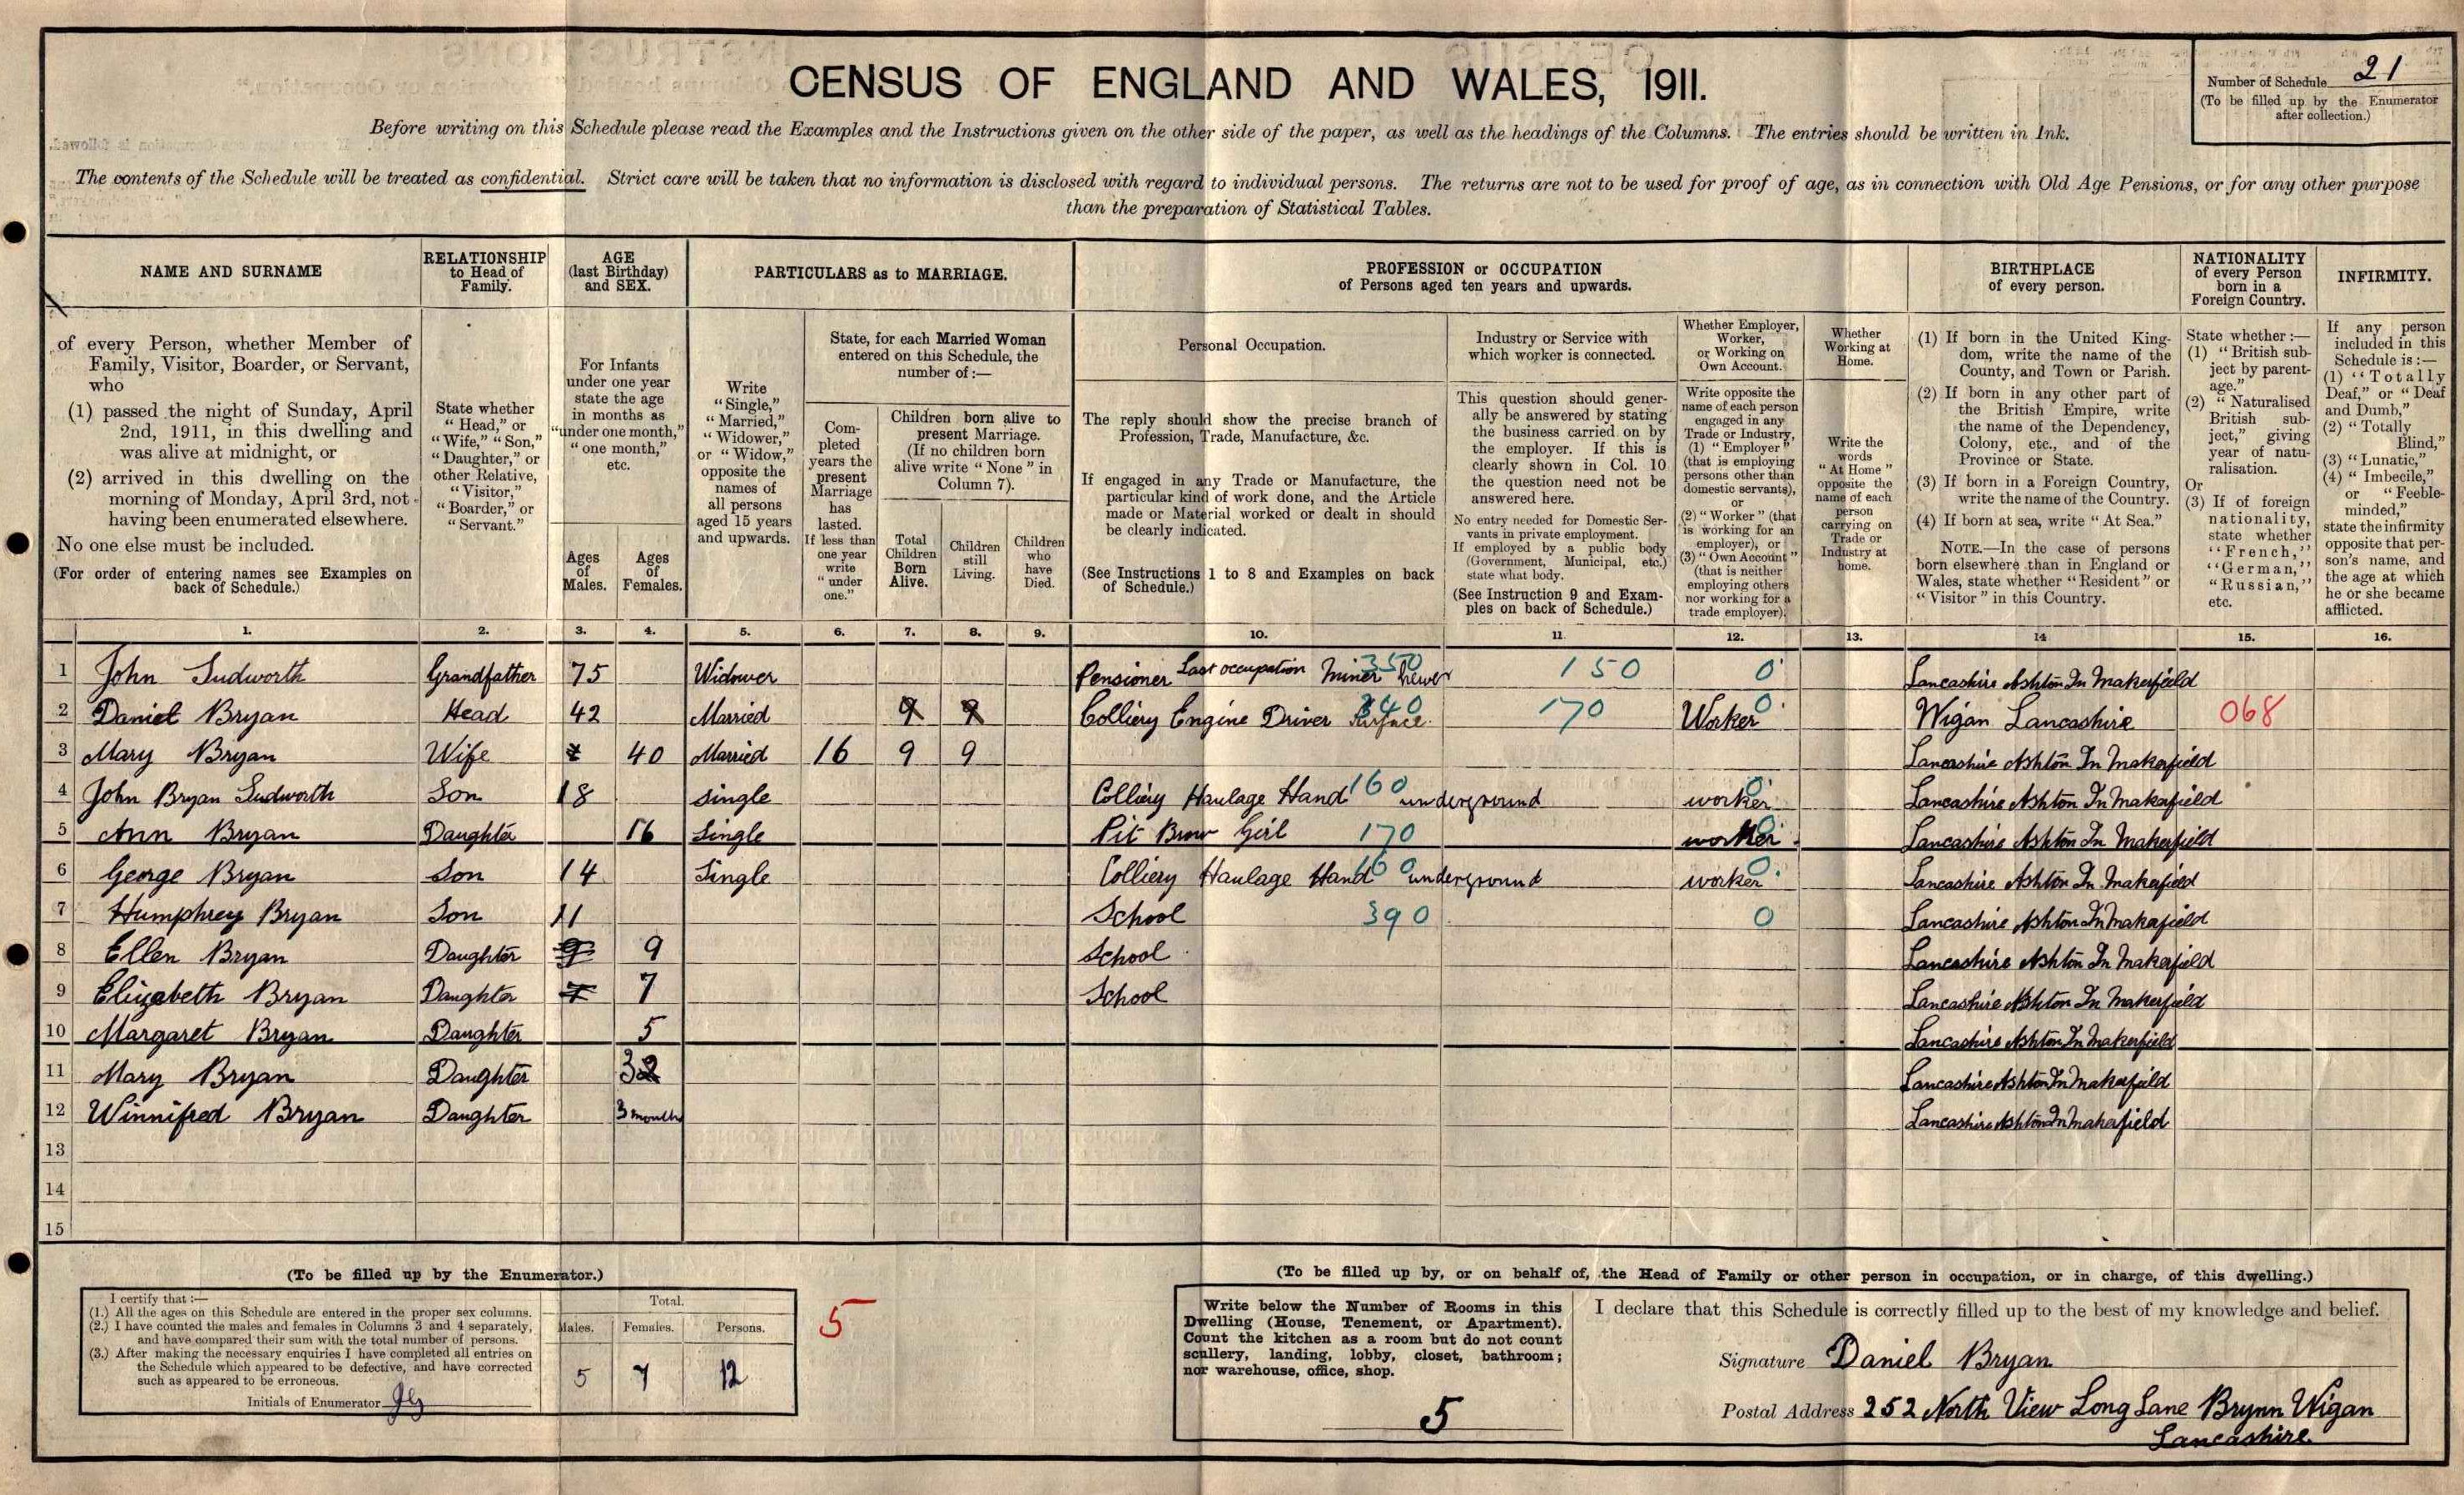 CENSUS OF ENGLAND AND WALES, 1911.
Number of Schedule 21
(To be filled up by the Enumerator
after collection.)
Before writing on this Schedule please read the Examples and the Instructions given on the other side of the paper, as well as the headings of the Columns. The entries should be written in Ink.
The contents of the Schedule will be treated as confidential. Strict care will be taken that no information is disclosed with regard to individual persons. The returns are not to be used for proof of age, as in connection with Old Age Pensions, or for any other purpose
than the preparation of Statistical Tables.
NAME AND SURNAME
of every Person, whether Member of
Family, Visitor, Boarder, or Servant,
who
(1) passed the night of Sunday, April
2nd, 1911, in this dwelling and
was alive at midnight, or
(2) arrived in this dwelling on the
morning of Monday, April 3rd, not
having been enumerated elsewhere.
No one else must be included.
(For order of entering names see Examples on
back of Schedule.)
RELATIONSHIP
to Head of
Family.
State whether
"Head," or
"Wife," "Son,"
"Daughter," or
other Relative,
"Visitor,"
"Boarder," or
"Servant."
AGE
(last Birthday)
and SEX.
For Infants
under one year
state the age
in months as
"under one month,"
"one month,"
etc.
Ages
of
Males.
Ages
of
Females.
PARTICULARS as to MARRIAGE.
Write
"Single,"
"Married,"
"Widower,"
or "Widow,"
opposite the
names of
all persons
aged 15 years
and upwards.
State, for each Married Woman
entered on this Schedule, the
number of:—
Com-
pleted
years the
present
Marriage
has
lasted.
If less than
one year
write
"under
one."
Children born alive to
present Marriage.
(If no children born
alive write "None" in
Column 7).
Total
Children
Born
Alive.
Children
still
Living.
Children
who
have
Died.
PROFESSION or OCCUPATION
of Persons aged ten years and upwards.
Personal Occupation.
The reply should show the precise branch of
Profession, Trade, Manufacture, &c.
If engaged in any Trade or Manufacture, the
particular kind of work done, and the Article
made or Material worked or dealt in should
be clearly indicated.
(See Instructions 1 to 8 and Examples on back
of Schedule.)
Industry or Service with
which worker is connected.
This question should gener-
ally be answered by stating
the business carried on by
the employer. If this is
clearly shown in Col. 10
the question need not be
answered here.
No entry needed for Domestic Ser-
vants in private employment.
If employed by a public body
(Government, Municipal, etc.)
state what body.
(See Instruction 9 and Exam-
ples on back of Schedule.)
Whether Employer,
Worker,
or Working on
Own Account.
Write opposite the
name of each person
engaged in any
Trade or Industry,
(1) "Employer"
(that is employing
persons other than
domestic servants),
or
(2) "Worker" (that
is working for an
employer), or
(3) "Own Account"
(that is neither
employing others
nor working for a
trade employer).
Whether
Working at
Home.
Write the
words
"At Home"
opposite the
name of each
person
carrying on
Trade or
Industry at
home.
BIRTHPLACE
of every person.
(1) If born in the United King-
dom, write the name of the
County, and Town or Parish.
(2) If born in any other part of
the British Empire, write
the name of the Dependency,
Colony, etc., and of the
Province or State.
(3) If born in a Foreign Country,
write the name of the Country.
(4) If born at sea, write "At Sea."
NOTE.—In the case of persons
born elsewhere than in England or
Wales, state whether "Resident" or
"Visitor" in this Country.
NATIONALITY
of every Person
born in a
Foreign Country.
State whether:—
(1) "British sub-
ject by parent-
age."
(2) "Naturalised
British sub-
ject," giving
year of natu-
ralisation.
Or
(3) If of foreign
nationality,
state whether
"French,"
"German,"
"Russian,"
etc.
INFIRMITY.
If any person
included in this
Schedule is:—
(1) "Totally
Deaf," or "Deaf
and Dumb,"
(2) "Totally
Blind,"
(3) "Lunatic,"
(4) "Imbecile,"
or "Feeble-
minded,"
state the infirmity
opposite that per-
son's name, and
the age at which
he or she became
afflicted.
1. 2. 3. 4. 5. 6. 7. 8. 9. 10. 11 12. 13. 14 15. 16.
1 John Ludworth Grandfather 75 Widower Pensioner Last occupation Miner hewer 350 150 0 Lancashire Ashton In Makerfield
2 Daniel Bryan Head 42 Married 9 9 Colliery Engine Driver Surface 340 170 Worker 0 Wigan Lancashire 068
3 Mary Bryan Wife 40 Married 16 9 9 Lancashire Ashton In Makerfield
4 John Bryan Ludworth Son 18 single Colliery Haulage Hand 160 underground worker 0 Lancashire Ashton In Makerfield
5 Ann Bryan Daughter 16 Single Pit Brow Girl 170 worker 0 Lancashire Ashton In Makerfield
6 George Bryan Son 14 Single Colliery Haulage Hand 160 underground worker 0 Lancashire Ashton In Makerfield
7 Humphrey Bryan Son 11 School 390 0 Lancashire Ashton In Makerfield
8 Ellen Bryan Daughter 9 9 School Lancashire Ashton In Makerfield
9 Elizabeth Bryan Daughter 7 7 School Lancashire Ashton In Makerfield
10 Margaret Bryan Daughter 5 Lancashire Ashton In Makerfield
11 Mary Bryan Daughter 3 Lancashire Ashton In Makerfield
12 Winnifred Bryan Daughter 3 months Lancashire Ashton In Makerfield
13
14
15
(To be filled up by the Enumerator.)
I certify that:—
(1.) All the ages on this Schedule are entered in the proper sex columns.
(2.) I have counted the males and females in Columns 3 and 4 separately,
and have compared their sum with the total number of persons.
(3.) After making the necessary enquiries I have completed all entries on
the Schedule which appeared to be defective, and have corrected
such as appeared to be erroneous.
Initials of Enumerator
Total.
Males. Females. Persons.
5 7 12
5
(To be filled up by, or on behalf of, the Head of Family or other person in occupation, or in charge, of this dwelling.)
Write below the Number of Rooms in this
Dwelling (House, Tenement, or Apartment).
Count the kitchen as a room but do not count
scullery, landing, lobby, closet, bathroom;
nor warehouse, office, shop.
5
I declare that this Schedule is correctly filled up to the best of my knowledge and belief.
Signature Daniel Bryan
Postal Address 252 North View Long Lane Brynn Wigan
Lancashire